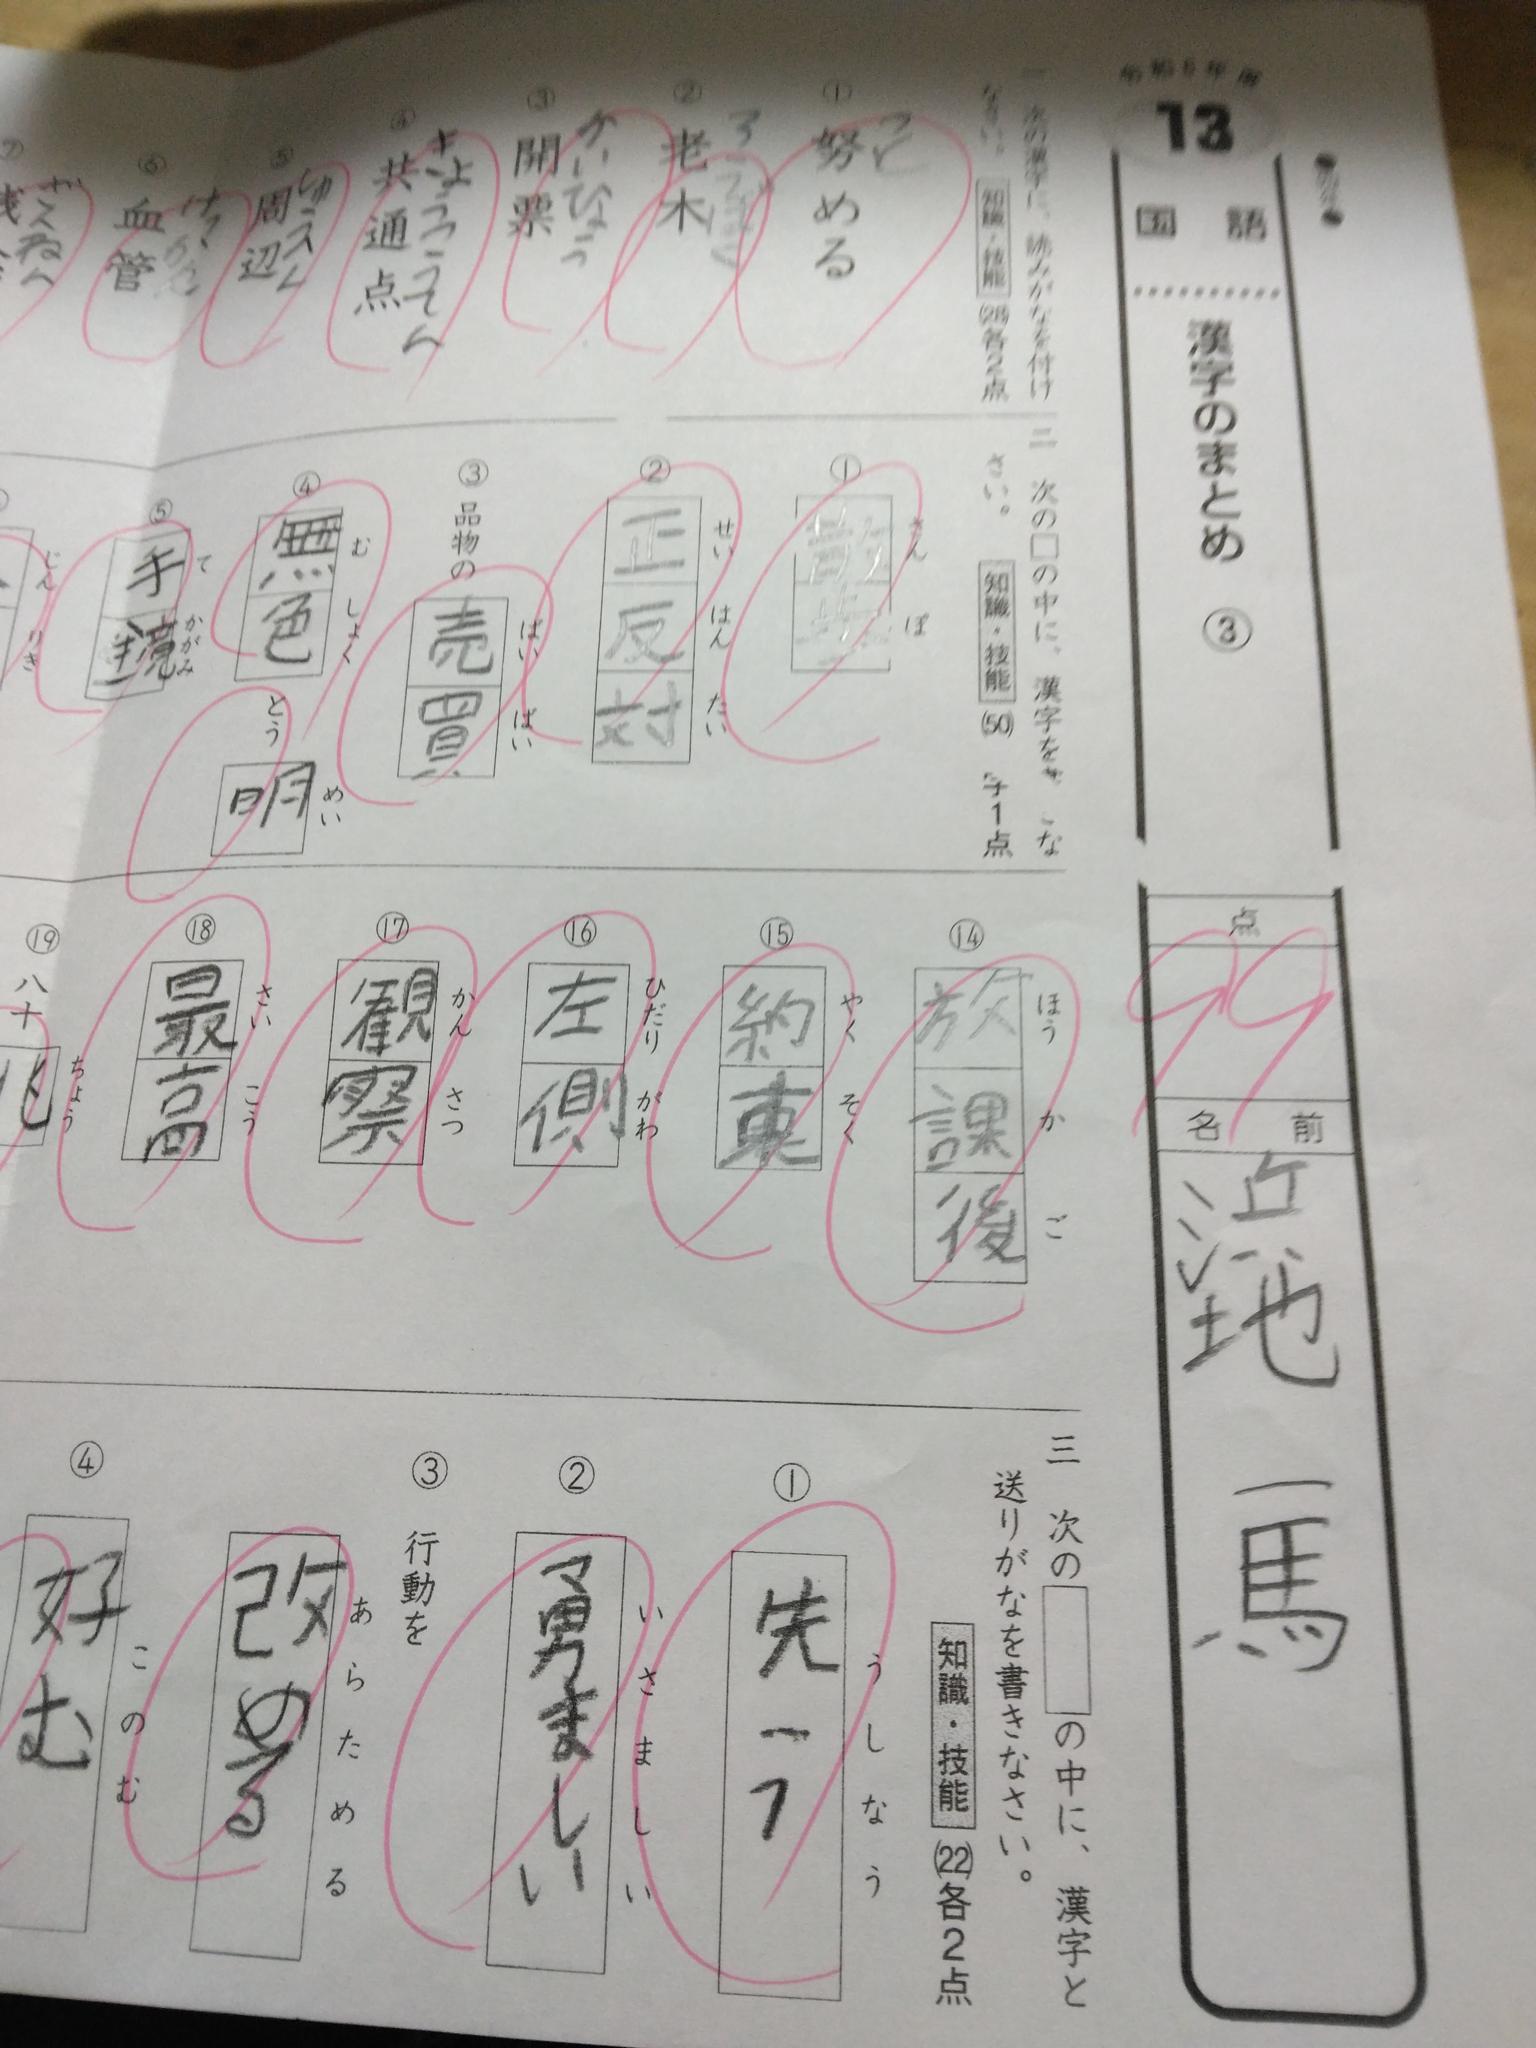 13
国語
漢字のまとめ ③
点
99
名前
一馬
一 次の漢字に、読みがなを付け
なさい。 知識・技能 (28)各2点
① 努める
つと
② 老木
③ 開票
かいひょう
④ 共通点
きょうつうてん
⑤ 周辺
⑥ 血管
けっかん
⑦
二 次の□の中に、漢字を
さい。 知識・技能 (50) 字1点
① さんぽ
② せいはんたい
正反対
③ 品物の ばいばい
売買
④ むしょくとうめい
無色 とう 明
⑤ てかがみ
手鏡
じんりき
⑭ ほうかご
放課後
⑮ やくそく
約束
⑯ ひだりがわ
左側
⑰ かんさつ
観察
⑱ さいこう
最高
⑲ 八十 ちょう
兆
三 次の□の中に、漢字と
送りがなを書きなさい。
知識・技能 (22)各2点
① うしなう
② いさましい
勇ましい
③ 行動を あらためる
改める
④ このむ
好む